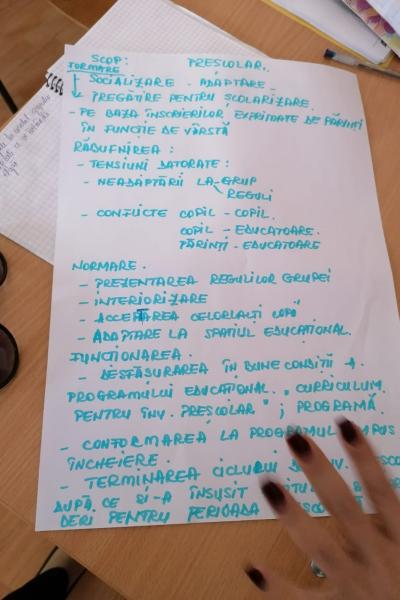 SCOP: PREȘCOLAR.
FORMARE
SOCIALIZARE - ADAPTARE -
- PREGĂTIRE PENTRU ȘCOLARIZARE.
- PE BAZA ÎNSCRIERILOR EXPRIMATE DE PĂRINȚI
ÎN FUNCȚIE DE VÂRSTĂ
RĂBUFNIREA:
- TENSIUNI DATORATE:
- NEADAPTĂRII LA - GRUP
REGULI
- CONFLICTE COPIL - COPIL.
COPIL - EDUCATOARE.
PĂRINȚI - EDUCATOARE
NORMARE.
- PREZENTAREA REGULILOR GRUPEI
- INTERIORIZARE
- ACCEPTAREA CELORLALȚI COPII
- ADAPTARE LA SPAȚIUL EDUCAȚIONAL.
FUNCȚIONAREA.
- DESFĂȘURAREA ÎN BUNE CONDIȚII A
PROGRAMULUI EDUCAȚIONAL „CURRICULUM
PENTRU ÎNV. PREȘCOLAR"; PROGRAMĂ.
- CONFORMAREA LA PROGRAMUL
ÎNCHEIERE.
- TERMINAREA CICLULUI
DUPĂ CE ȘI-A ÎNSUȘIT
DERI PENTRU PERIOADA